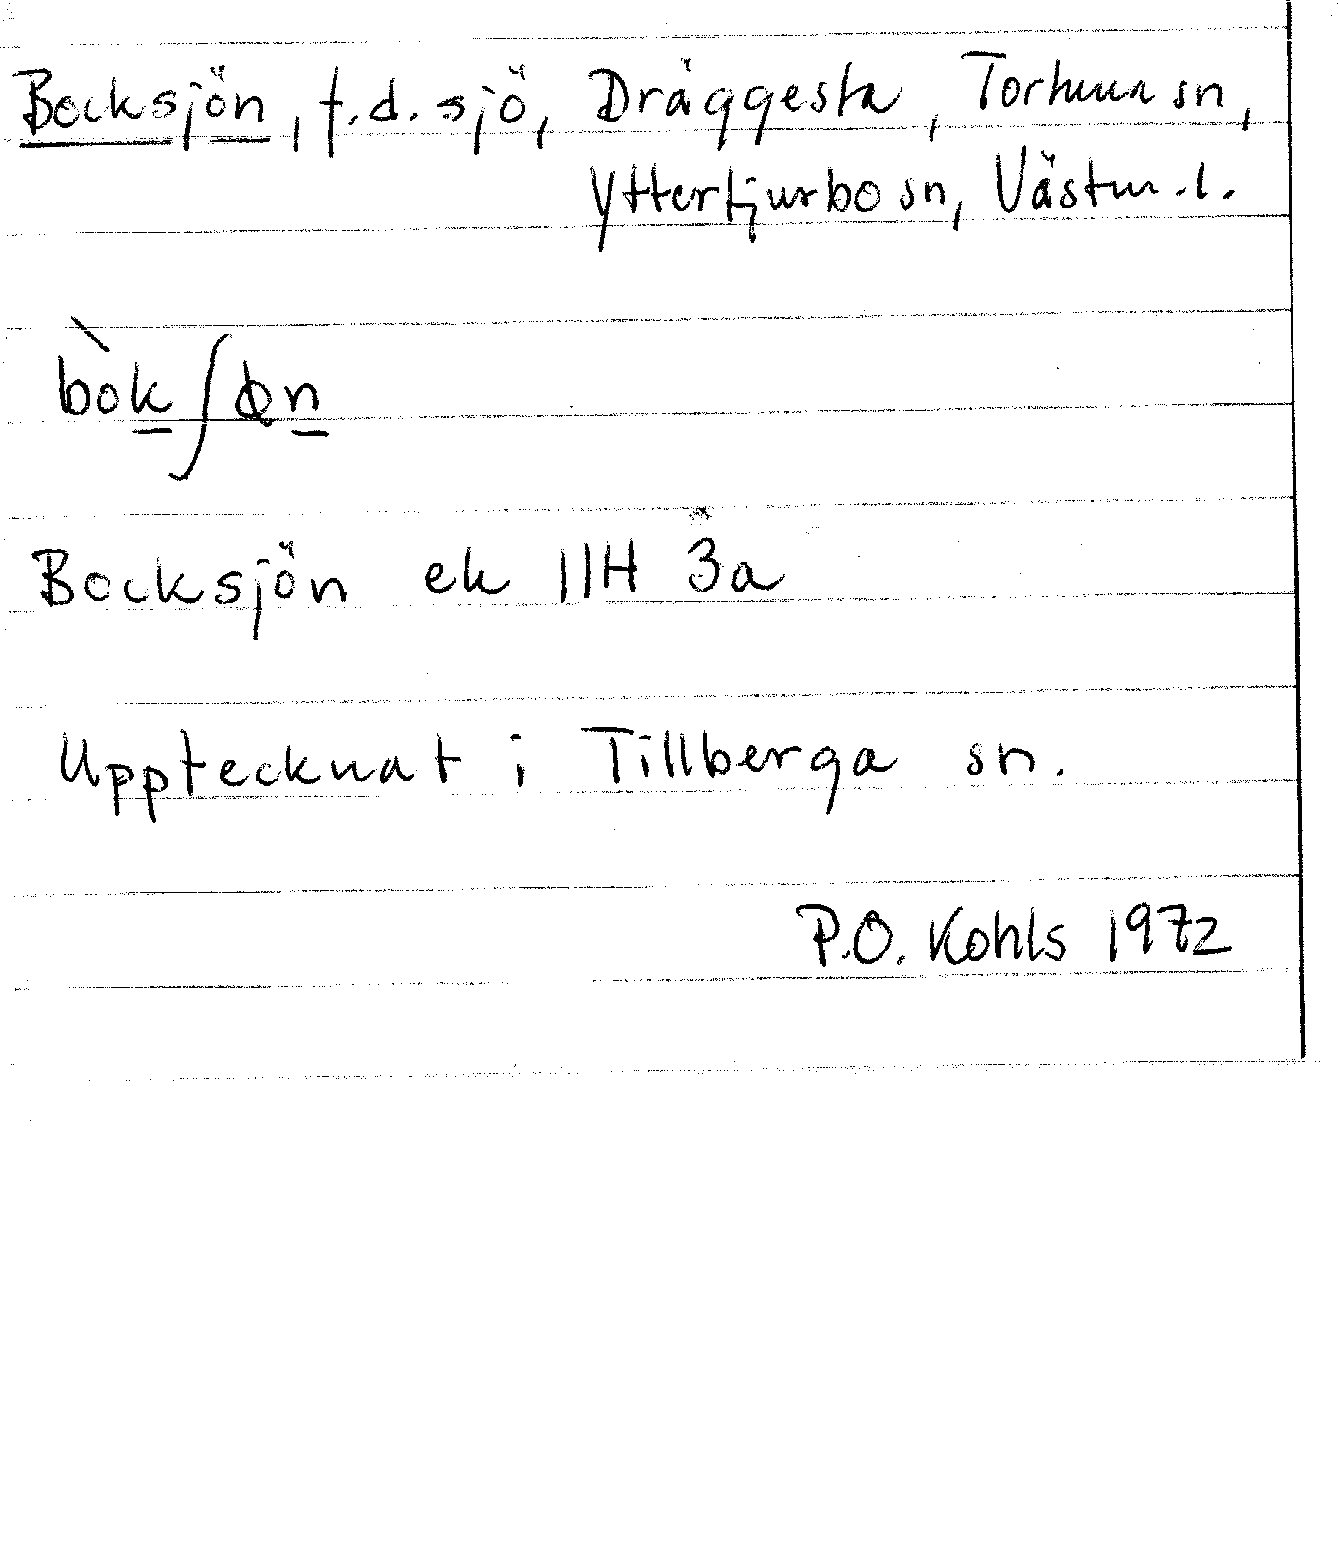 Bocksjön, f.d. sjö, Dräggesta, Tortuna sn,
Yttertjurbo sn, Västm. l.
bòk ʃɸn
Bocksjön ek 11H 3a
Upptecknat i Tillberga sn.
P.O. Kohls 1972